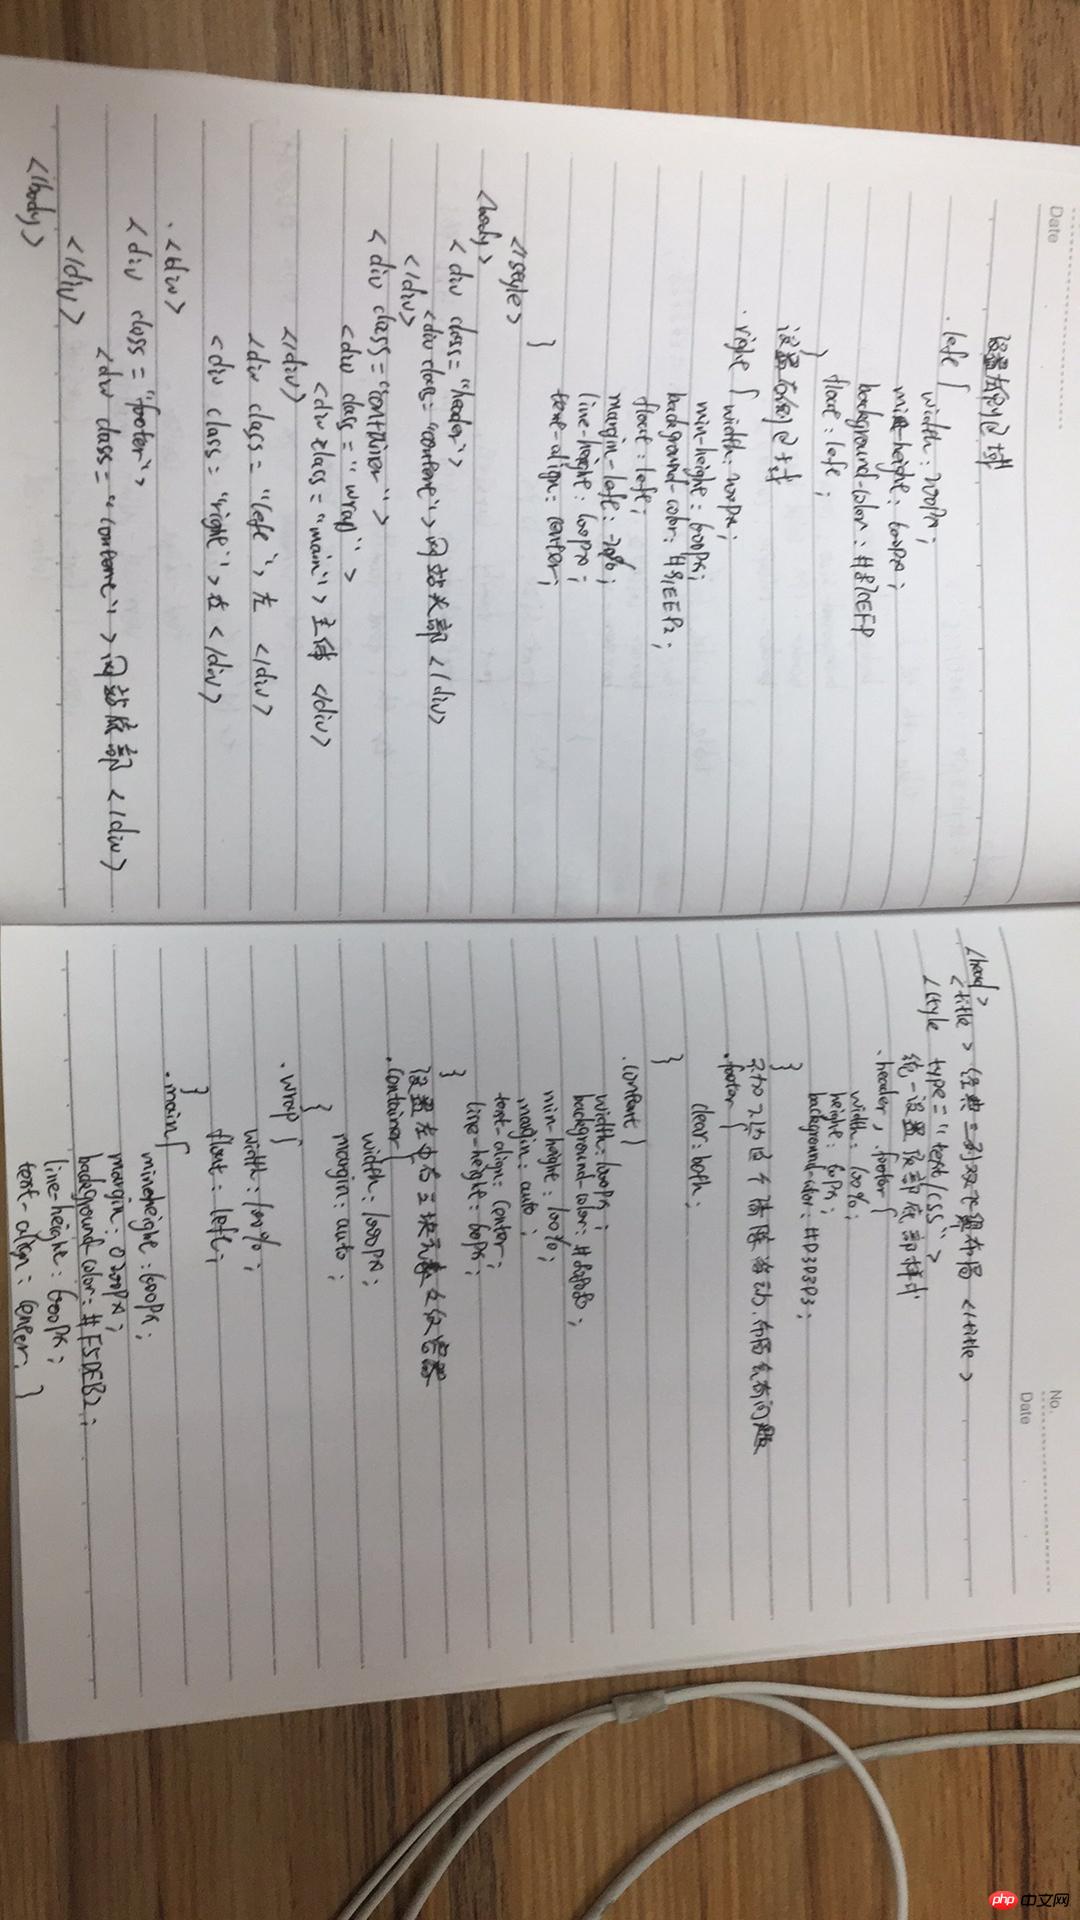 No.
Date
<head>
<title> 经典三列双飞翼布局 </title>
<style type="text/css">
统一设置顶部底部样式
.header, .footer{
width: 100%;
height: 60px;
background-color: #D3D3D3;
}
.footer{
clear: both;
}
.content{
width: 1000px;
background-color:
min-height: 100%;
margin: auto;
text-align: center;
line-height: 60px;
}
设置左中右三块元素父级容器
.container{
width: 1000px;
margin: auto;
}
.wrap{
width: 100%;
float: left;
}
.main{
min-height: 600px;
margin: 0 200px;
background-color: #F5DEB2;
line-height: 600px;
text-align: center; }
Date
设置左侧样式
.left {
width: 200px;
min-height: 600px;
background-color:
float: left;
}
设置右侧样式
.right { width: 200px;
min-height: 600px;
background-color:
float: left;
margin-left:
line-height: 600px;
text-align: center;
}
</style>
<body>
<div class="header">
<div class="content">网站头部</div>
</div>
<div class="container">
<div class="wrap">
<div class="main">主体 </div>
</div>
<div class="left">左 </div>
<div class="right">右 </div>
.<div>
<div class="footer">
<div class="content">网站底部 </div>
</div>
</body>
php 中文网